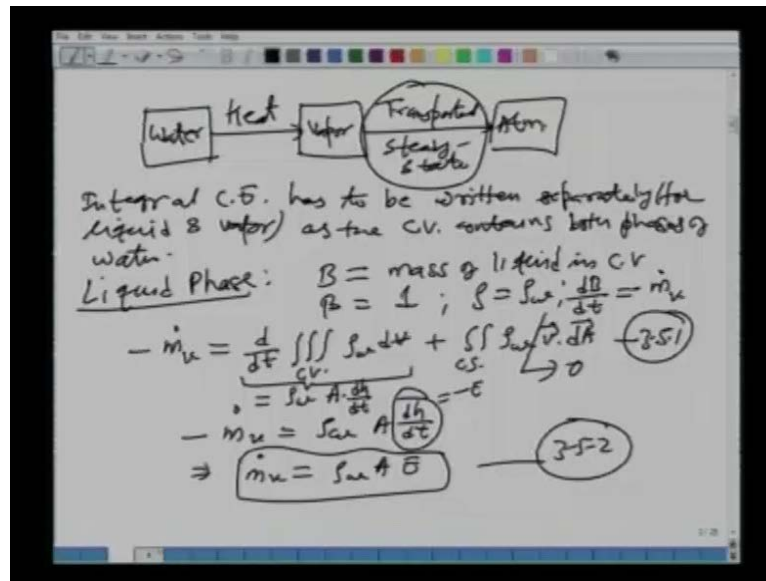 File Edit View Insert Actions Tools Help
Water Heat Vapor Transported Atm.
steady-
state
Integral C.E. has to be written separately (for
liquid & vapor) as the C.V. contains both phases of
water.
Liquid Phase: B = mass of liquid in C.V
β = 1 ; ρ = ρw ; dB/dt = - ṁv
- ṁv = d/dt ∭ ρw d∀ + ∬ ρw V̄.dĀ — 3.5.1
C.V. C.S. → 0
= ρw A. dh/dt = -E
- ṁv = ρw A dh/dt
⇒ ṁv = ρw A E — 3-5-2